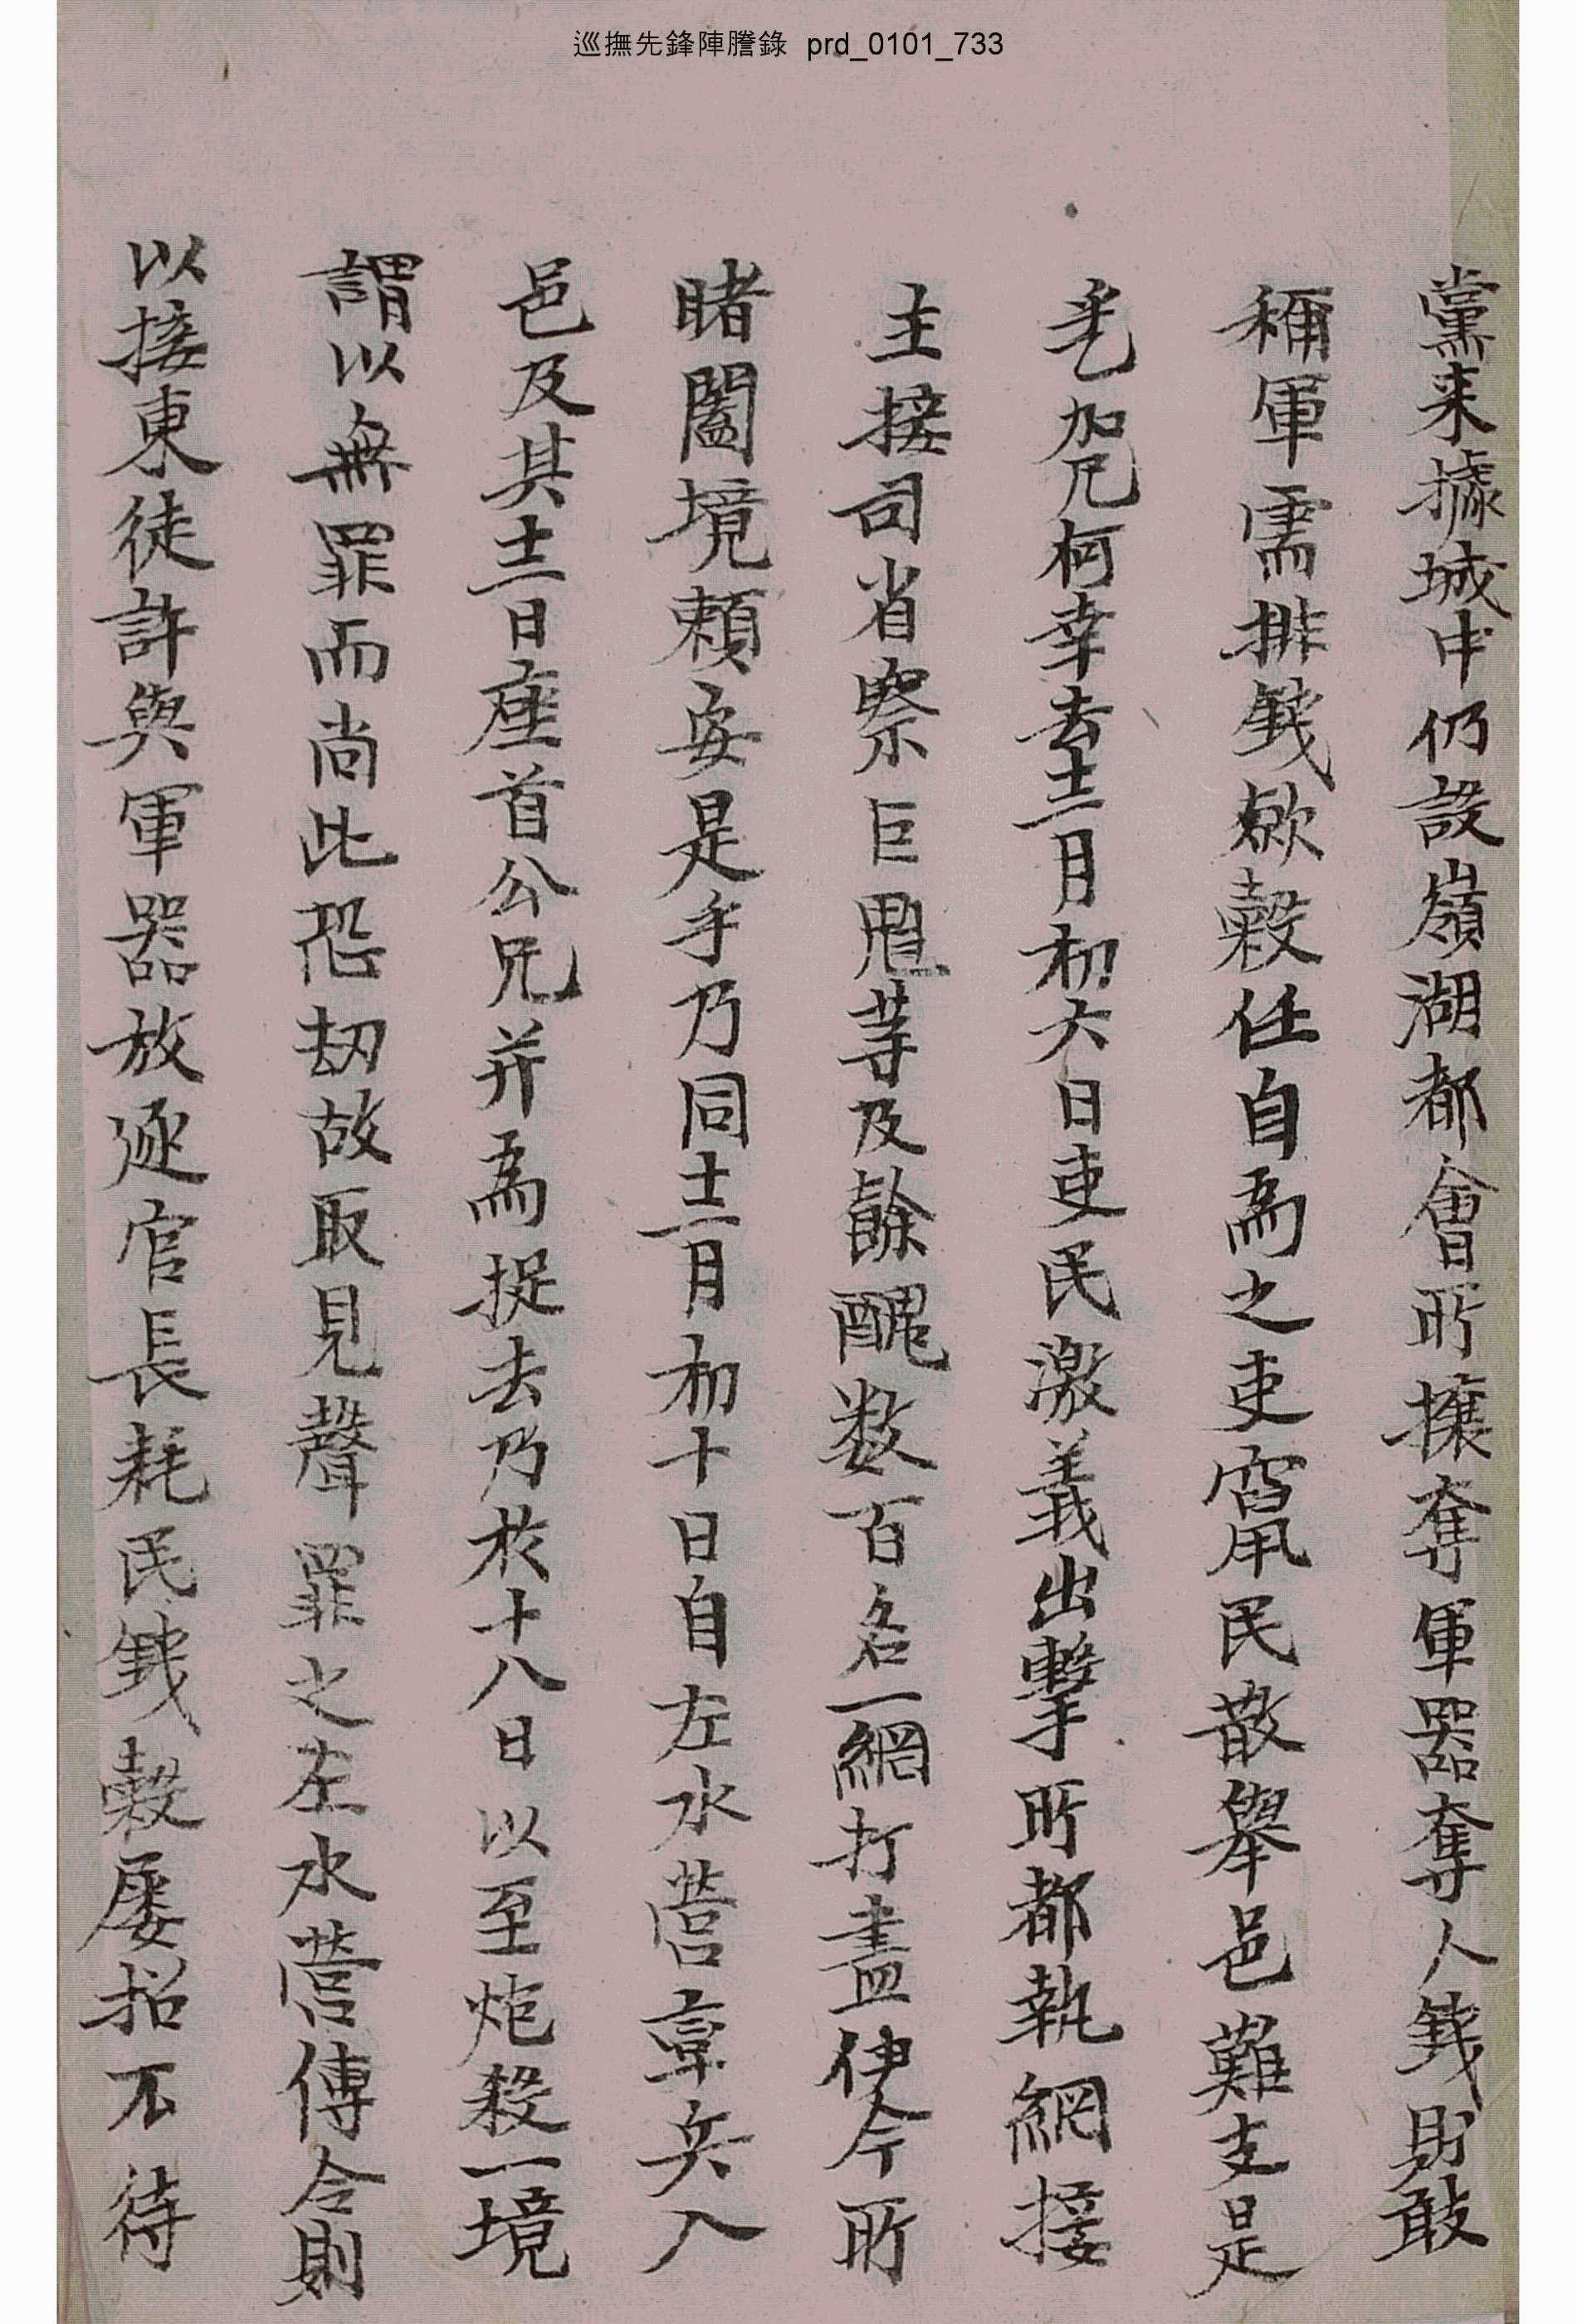 巡撫先鋒陣謄錄 prd_0101_733
黨来據城中仍設嶺湖都會所攘奪軍器奪人錢財敢
稱軍需排錢斂穀任自爲之吏竄民散舉邑難支是
乎所幸去十二月初六日吏民激義出擊所都執綱接
主接司省察巨魁等及餘醜数百名一網打盡伊今所
睹闔境賴安是乎乃同十二月初十日自左水營章兵入
邑及其十二日座首公兄并爲捉去乃於十八日以至炮殺一境
謂以無罪而尚此恐劫故取見聲罪之左水營傳令則
以接東徒許與軍器放逐官長耗民錢穀屡招不待